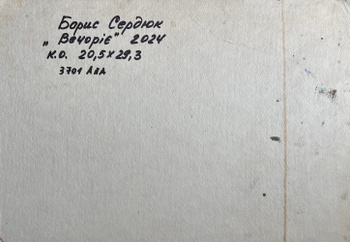 Борис Сердюк
„Вечоріє" 2024
к.о. 20,5х29,3
3701 АВА